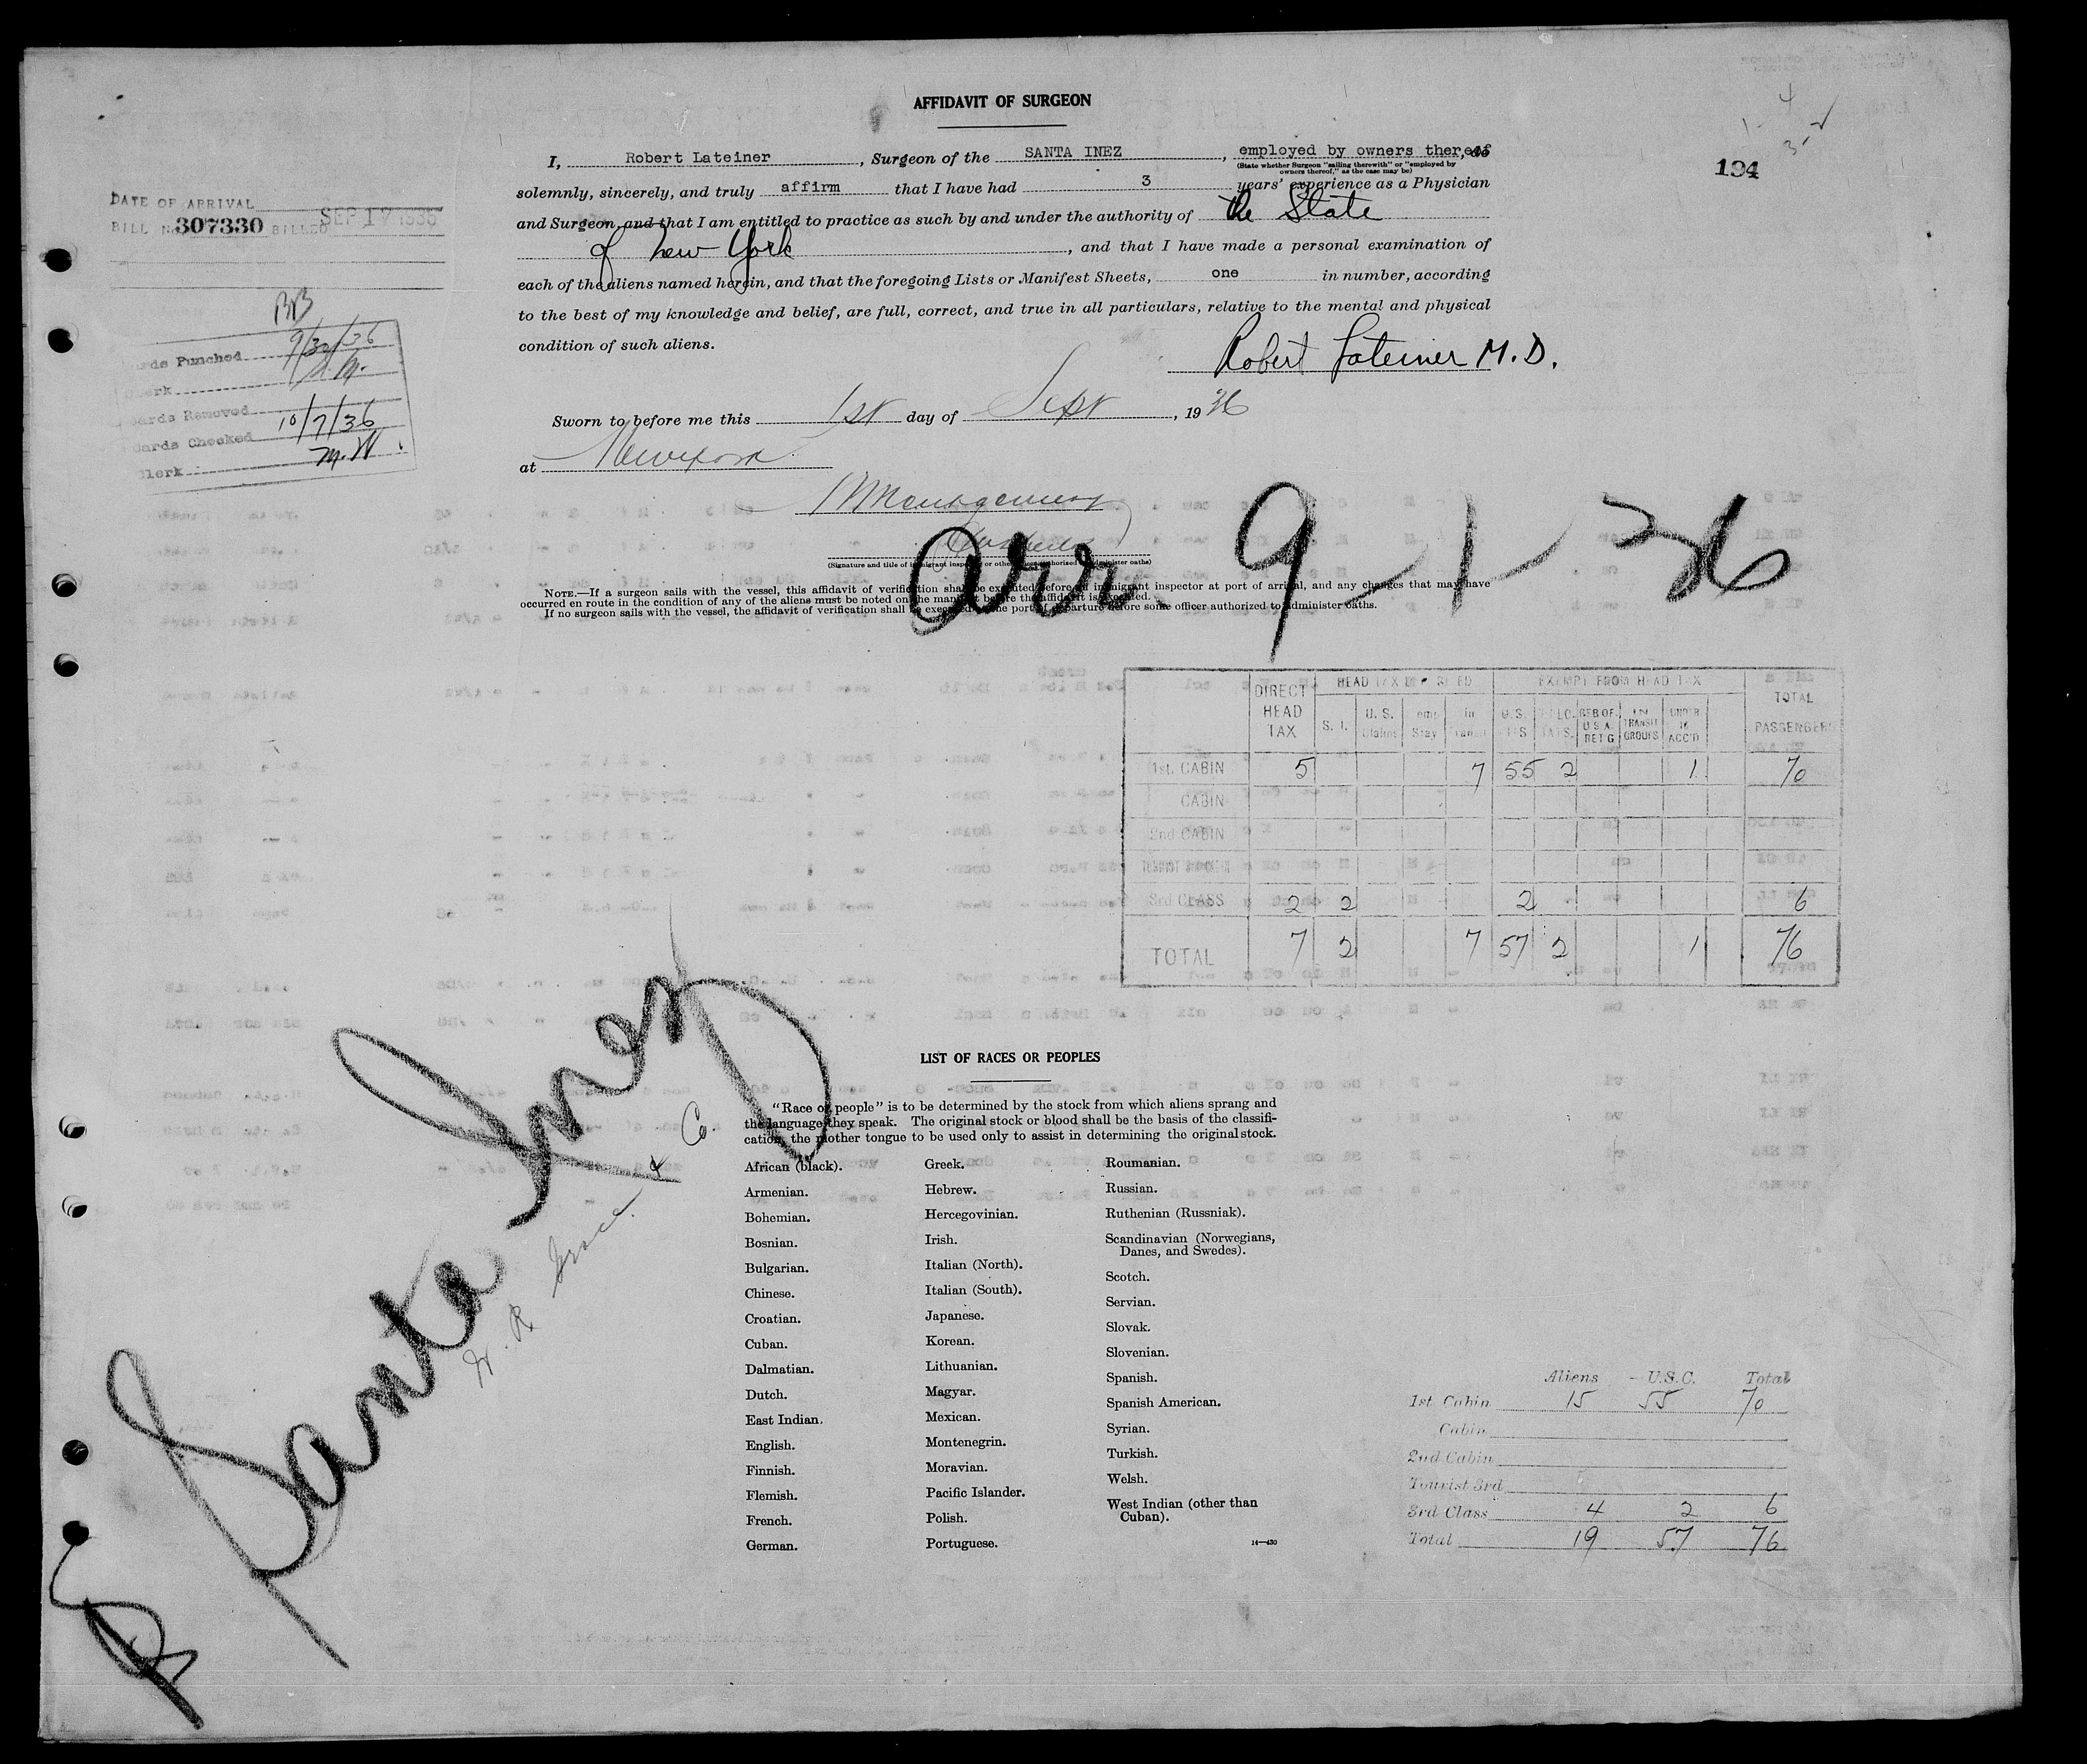 AFFIDAVIT OF SURGEON
194
I, Robert Lateiner, Surgeon of the SANTA INEZ, employed by owners thereof, do
(State whether Surgeon "sailing therewith" or "employed by
owners thereof," as the case may be)
solemnly, sincerely, and truly affirm that I have had 3 years' experience as a Physician
and Surgeon, and that I am entitled to practice as such by and under the authority of the State
of New York, and that I have made a personal examination of
each of the aliens named herein, and that the foregoing Lists or Manifest Sheets, one in number, according
to the best of my knowledge and belief, are full, correct, and true in all particulars, relative to the mental and physical
condition of such aliens.
Robert Lateiner M.D.
Sworn to before me this 1st day of Sept, 1936
at New York
Montgomery
(Signature and title of immigrant inspector or other officer authorized to administer oaths)
NOTE.—If a surgeon sails with the vessel, this affidavit of verification shall be executed before an immigrant inspector at port of arrival, and any changes that may have
occurred en route in the condition of any of the aliens must be noted on the manifest before the affidavit is executed.
If no surgeon sails with the vessel, the affidavit of verification shall be executed at the port of departure before some officer authorized to administer oaths.
DATE OF ARRIVAL
BILL No. 307330 BILLED SEP 17 1936
BB
Cards Punched 9/30/36
Clerk
Cards Removed
Cards Checked 10/7/36
Clerk M.W.
Arr 9-1-36
DIRECT HEAD TAX
HEAD TAX
S. I.
U. S.
Stay
EXEMPT FROM HEAD TAX
U.S.
IN TRANSIT GROUPS
UNDER 16 ACC'D
TOTAL PASSENGERS
1st. CABIN 5 7 55 2 1 70
CABIN
2nd CABIN
3rd CLASS 2 2 2 6
TOTAL 7 2 7 57 2 1 76
Santa Inez
W. R. Grace & Co.
LIST OF RACES OR PEOPLES
"Race or people" is to be determined by the stock from which aliens sprang and
the language they speak. The original stock or blood shall be the basis of the classifi-
cation, the mother tongue to be used only to assist in determining the original stock.
African (black).
Armenian.
Bohemian.
Bosnian.
Bulgarian.
Chinese.
Croatian.
Cuban.
Dalmatian.
Dutch.
East Indian.
English.
Finnish.
Flemish.
French.
German.
Greek.
Hebrew.
Hercegovinian.
Irish.
Italian (North).
Italian (South).
Japanese.
Korean.
Lithuanian.
Magyar.
Mexican.
Montenegrin.
Moravian.
Pacific Islander.
Polish.
Portuguese.
Roumanian.
Russian.
Ruthenian (Russniak).
Scandinavian (Norwegians,
Danes, and Swedes).
Scotch.
Servian.
Slovak.
Slovenian.
Spanish.
Spanish American.
Syrian.
Turkish.
Welsh.
West Indian (other than
Cuban).
14—430
Aliens U.S.C. Total
1st Cabin 15 55 70
Cabin
2nd Cabin
Tourist 3rd
3rd Class 4 2 6
Total 19 57 76